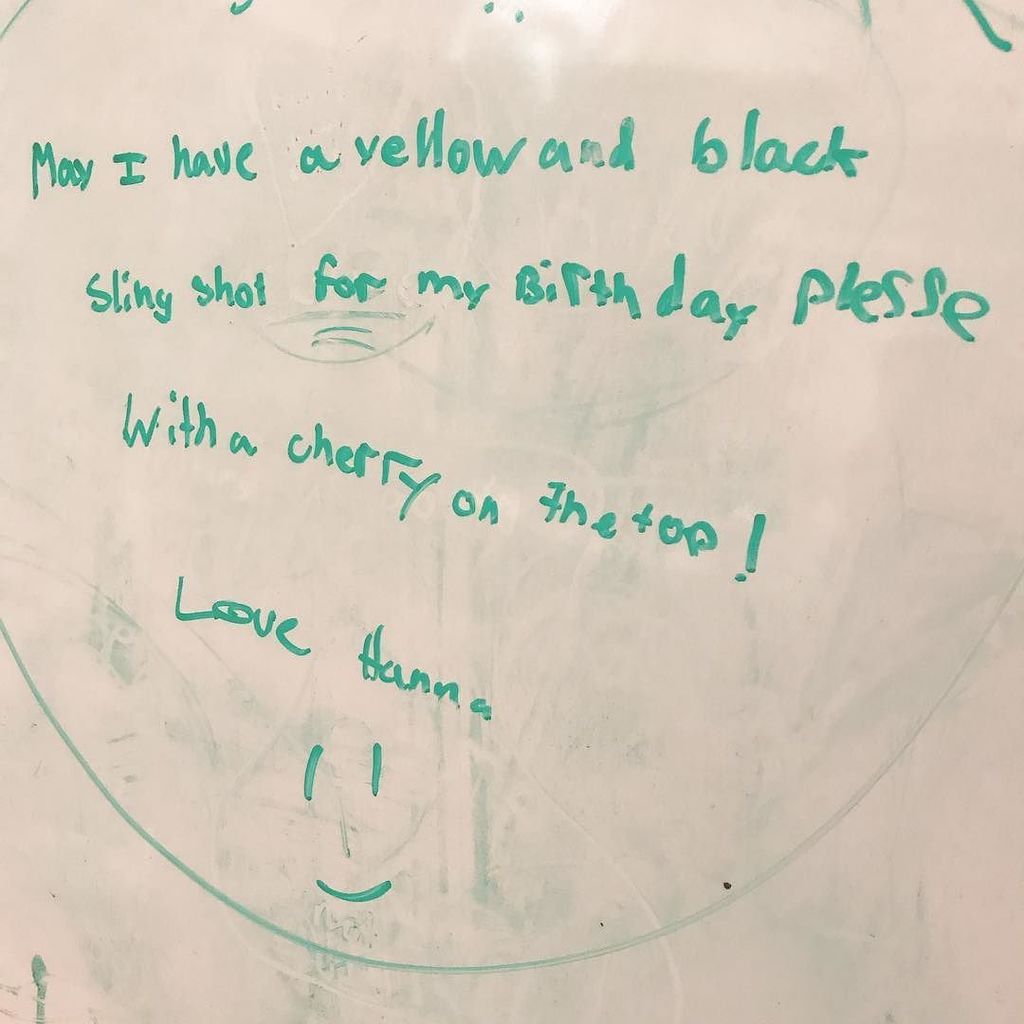 May I have a yellow and black
Sling shot for my Birthday plesse
With a cherry on the top!
Love Hanna